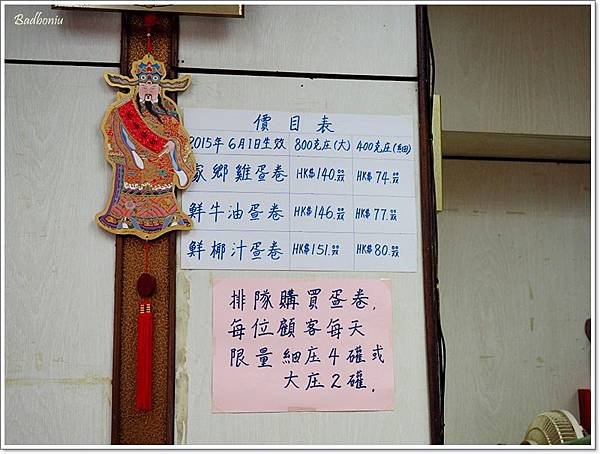 Badboniu
價目表
2015年 6月1日生效 800克庄(大) 400克庄(細)
家鄉雞蛋卷 HK$140.00 HK$74.00
鮮牛油蛋卷 HK$146.00 HK$77.00
鮮椰汁蛋卷 HK$151.00 HK$80.00
排隊購買蛋卷,
每位顧客每天
限量細庄4確或
大庄2確.